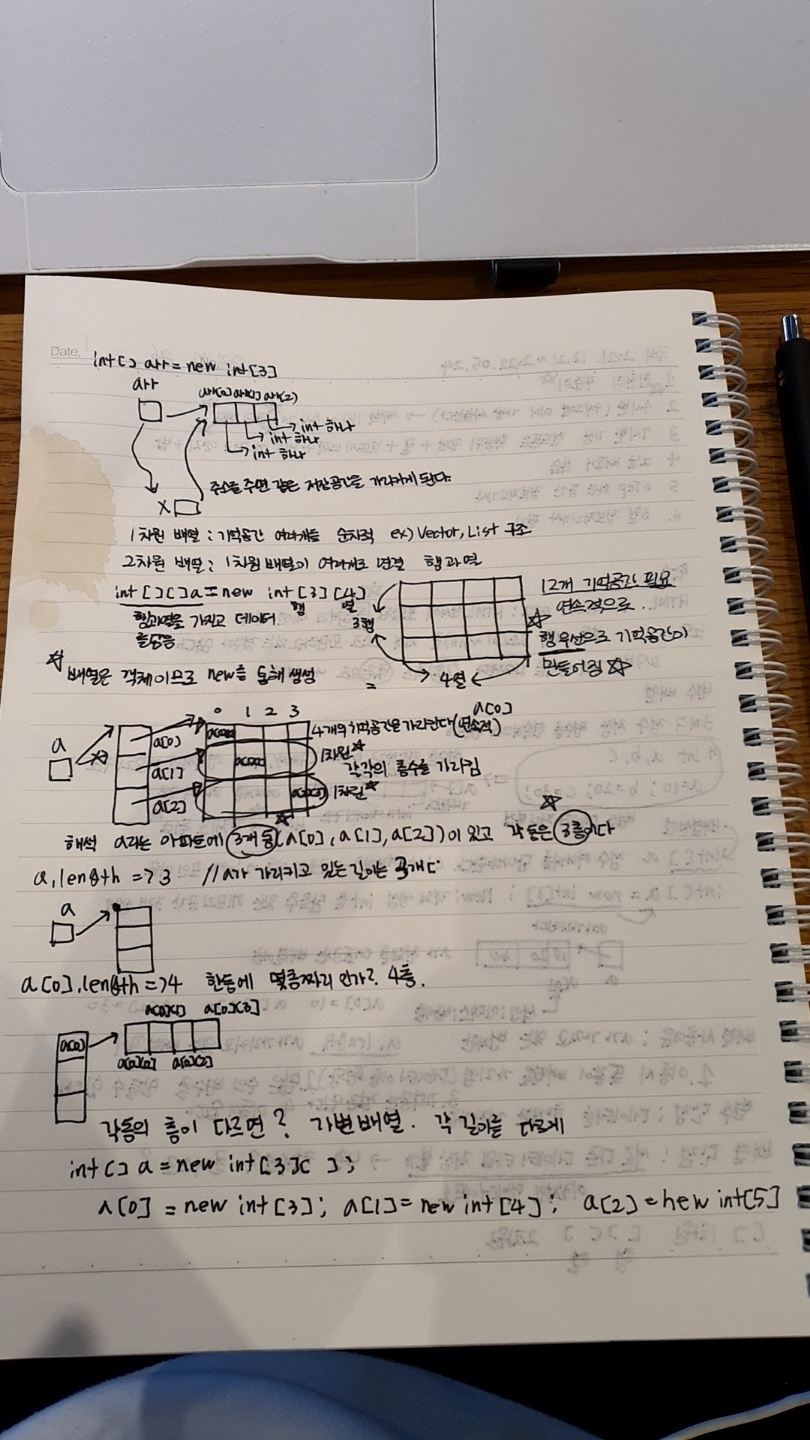 Date.
int[] arr = new int[3]
arr
arr[0] arr[1] arr[2]
int 하나
int 하나
int 하나
주소를 주면 같은 저장공간을 가리키게 된다.
x
1차원 배열 : 기억공간 여러개를 순차적 ex) Vector, List 구조
2차원 배열 : 1차원 배열이 여러개로 연결 행과 열
int [][] a = new int [3] [4]
행 열
행과 열을 가지고 데이터
3행
4열
12개 기억공간 필요
연속적으로..
행 우선으로 기억공간이
만들어짐 ☆
☆ 배열은 객체이므로 new를 통해 생성
0 1 2 3
a[0]
a
a[0]
4개의 기억공간은 가리킨다 (연속적)
1차원 ☆
a[1]
각각의 층수를 가리킴
a[2]
1차원 ☆
해석 a라는 아파트에 3개 동(a[0], a[1], a[2])이 있고 각 동은 3층이다
a.length => 3 //a가 가리키고 있는 길이는 3개다
a
a[0].length => 4 한동에 몇층짜리 인가? 4층.
a[0][1] a[0][3]
a[0]
a[0][0] a[0][2]
각동의 층이 다르면? 가변배열. 각 길이를 다르게
int[] a = new int[3][ ];
a[0] = new int[3]; a[1] = new int[4]; a[2] = new int[5]